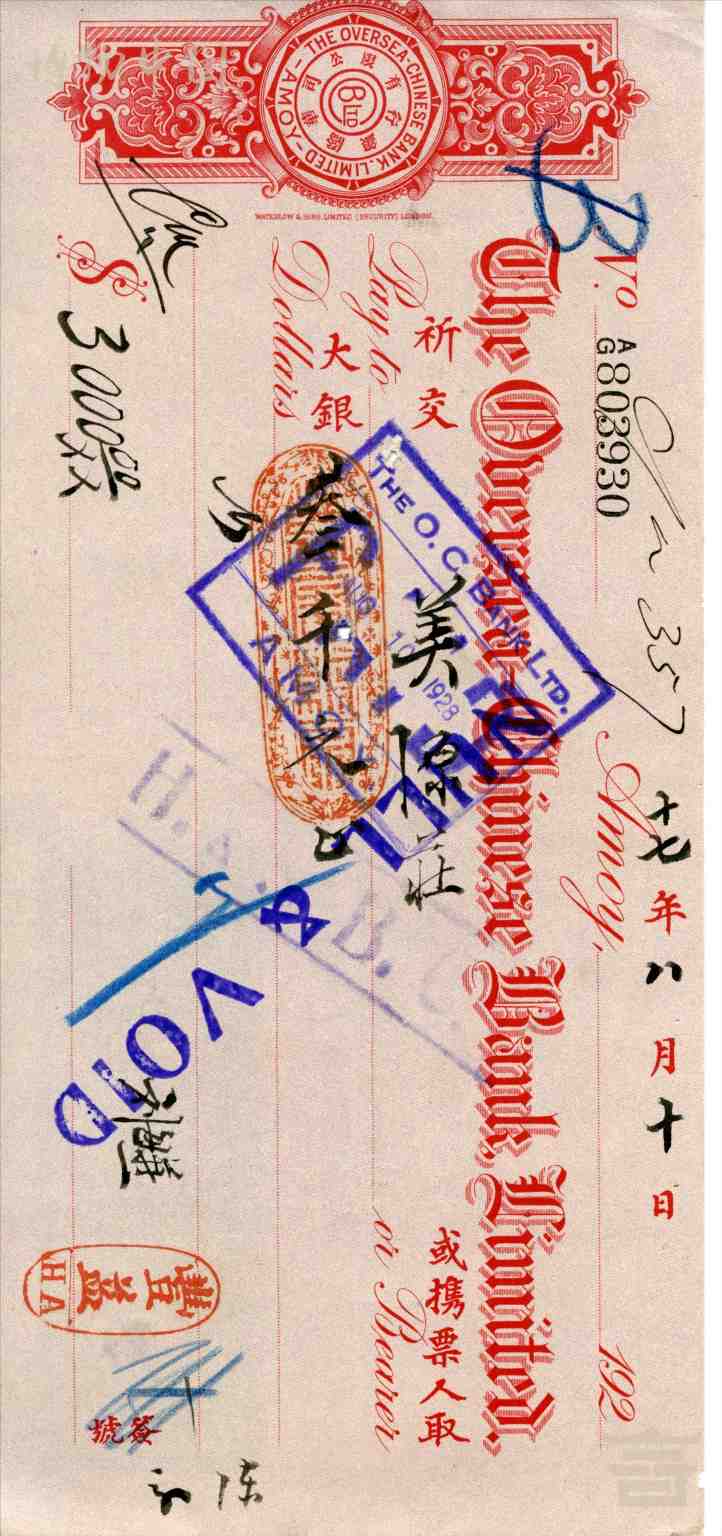 THE OVERSEA-CHINESE BANK, LIMITED
-AMOY-
有限公司
WATERLOW & SONS LIMITED
B
No AG 803930
357
The Oversea-Chinese Bank, Limited.
Amoy, 192
十七年八月十日
祈交 美 莊 或携票人取
Pay to or Bearer
大銀 叁千元
Dollars
$ 3000 00
THE O. C. BANK LTD.
10 1928
AMOY
VOID
豐益
HA
簽號